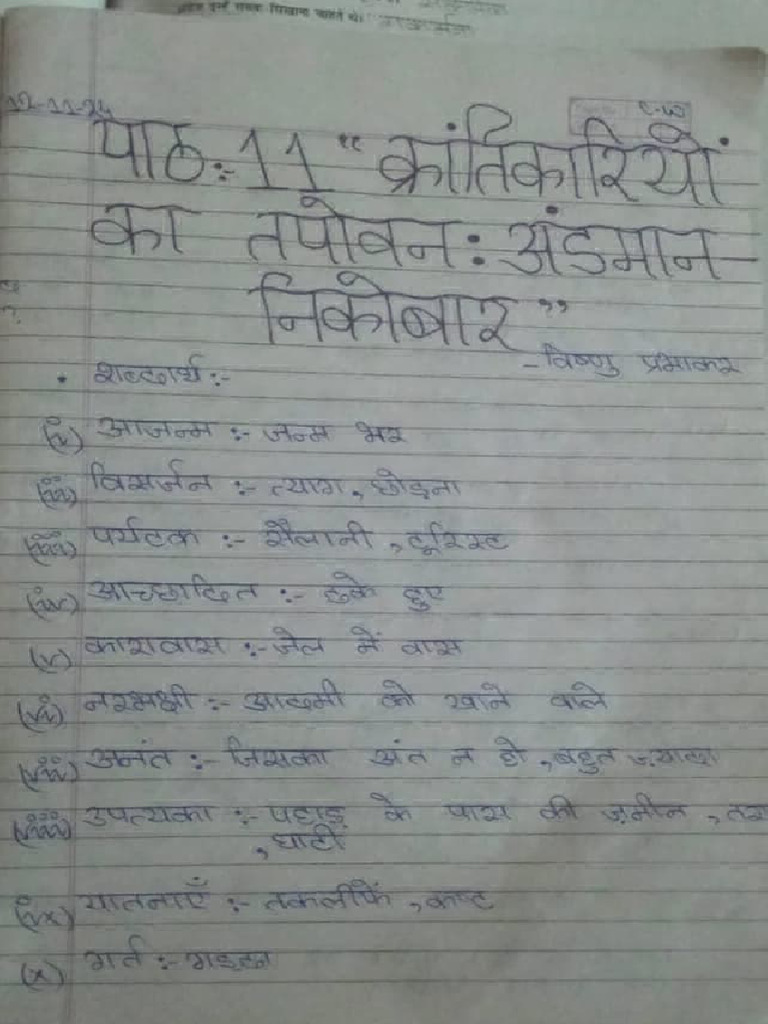 12-11-24
C-W
पाठ:- 11 "क्रांतिकारियों
का तपोवन: अंडमान-
निकोबार"
-विष्णु प्रभाकर
• शब्दार्थ:-
(i) आजन्म :- जन्म भर
(ii) विसर्जन :- त्याग, छोड़ना
(iii) पर्यटक :- सैलानी, टूरिस्ट
(iv) आच्छादित :- ढके हुए
(v) कारावास :- जेल में वास
(vi) नरभक्षी :- आदमी को खाने वाले
(vii) अनंत :- जिसका अंत न हो, बहुत ज़्यादा
(viii) उपत्यका :- पहाड़ के पास की ज़मीन,
, घाटी
(ix) यातनाएँ :- तकलीफें, कष्ट
(x) गर्त :- गड्ढा